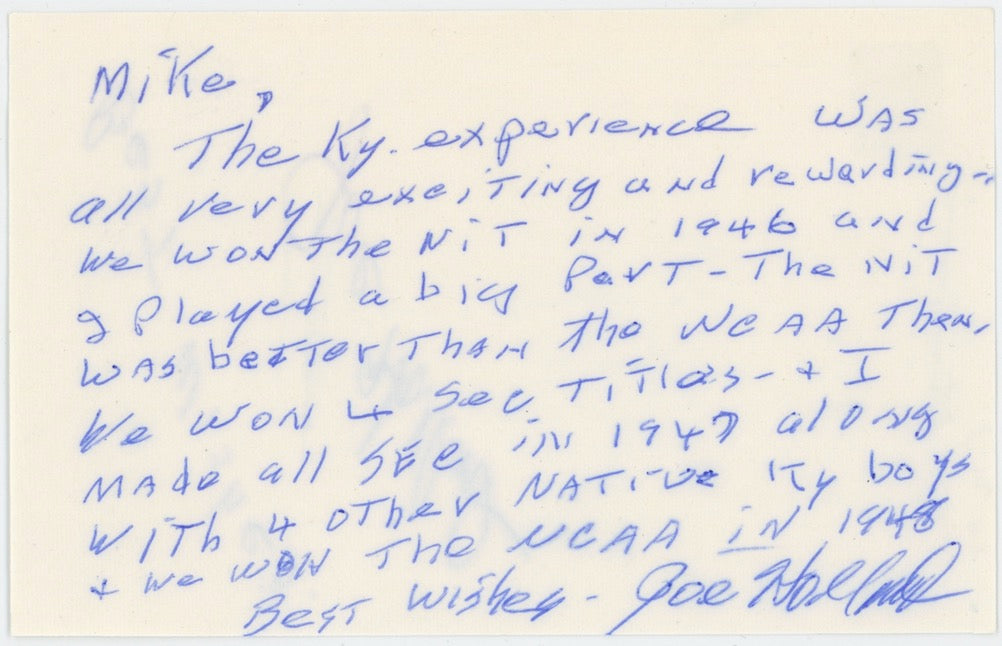 Mike,
The Ky. experience was
all very exciting and rewarding--
We won the NIT in 1946 and
I played a big part - The NIT
was better than the NCAA then,
We won 4 Sec titles - + I
made all SEC in 1947 along
with 4 other native Ky boys
+ we won the NCAA in 1948
Best Wishes - Joe Holland